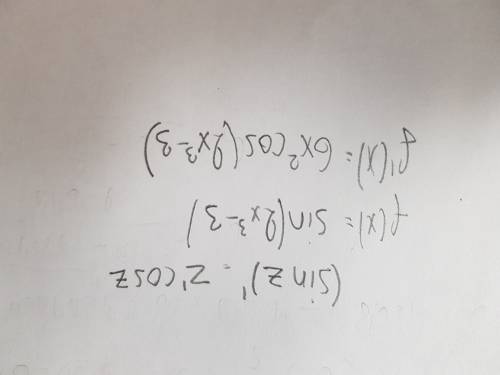 (sin z)' = z' cos z
f(x) = sin(2x³-3)
f'(x) = 6x² cos(2x³-3)